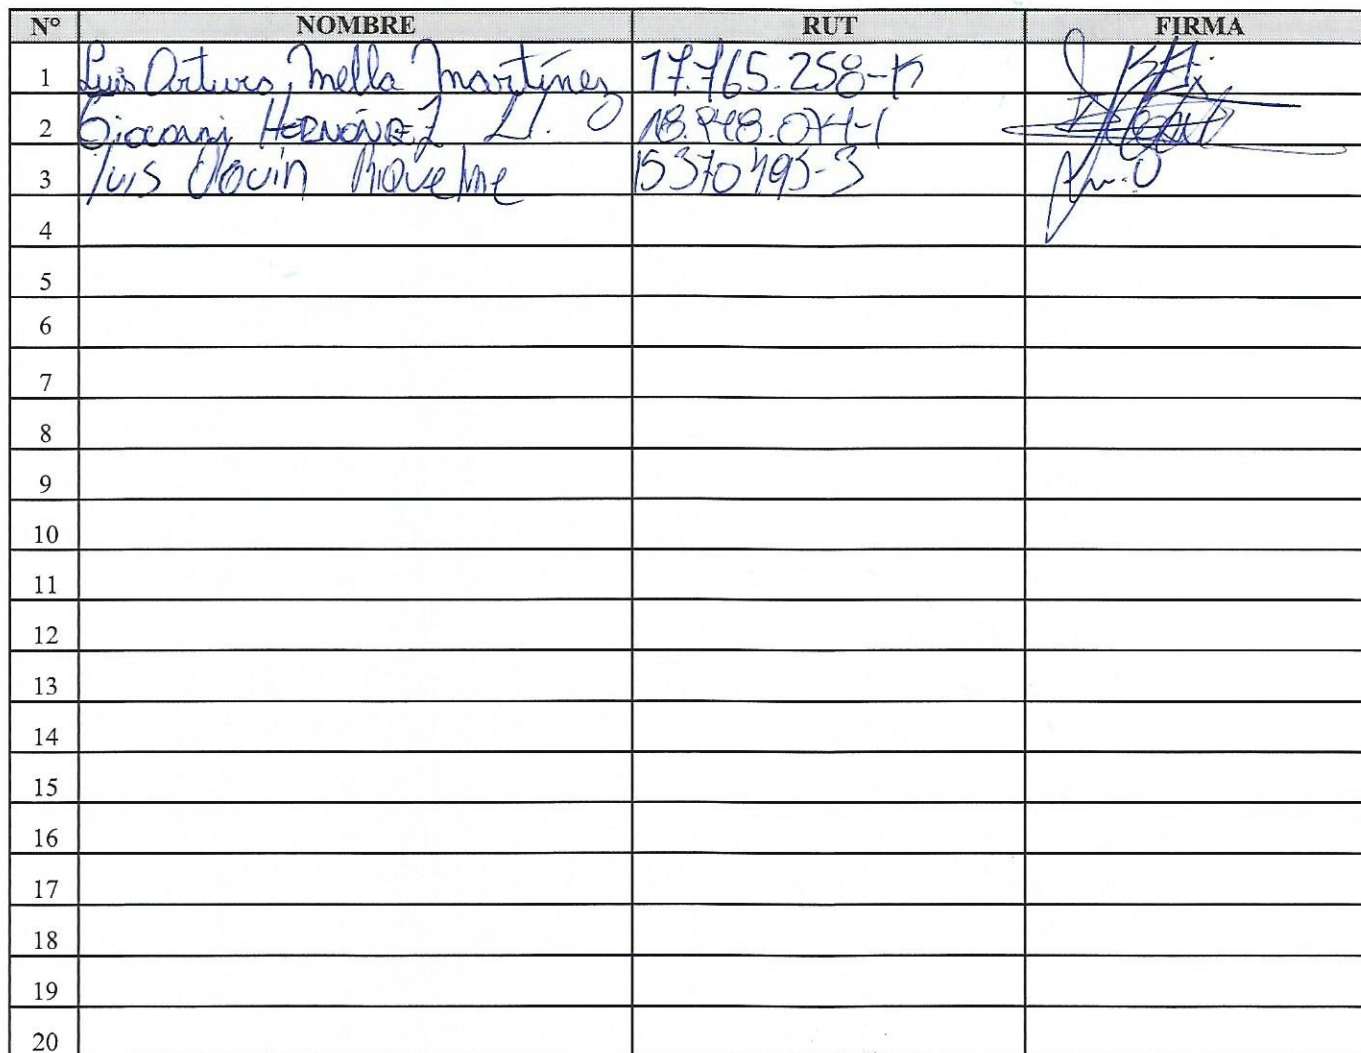 N° NOMBRE RUT FIRMA
1 Luis Arturo Mella Martínez 17.765.258-K
2 Giovani HERNÁNDEZ Ll.
3 Luis Riquelme
4
5
6
7
8
9
10
11
12
13
14
15
16
17
18
19
20